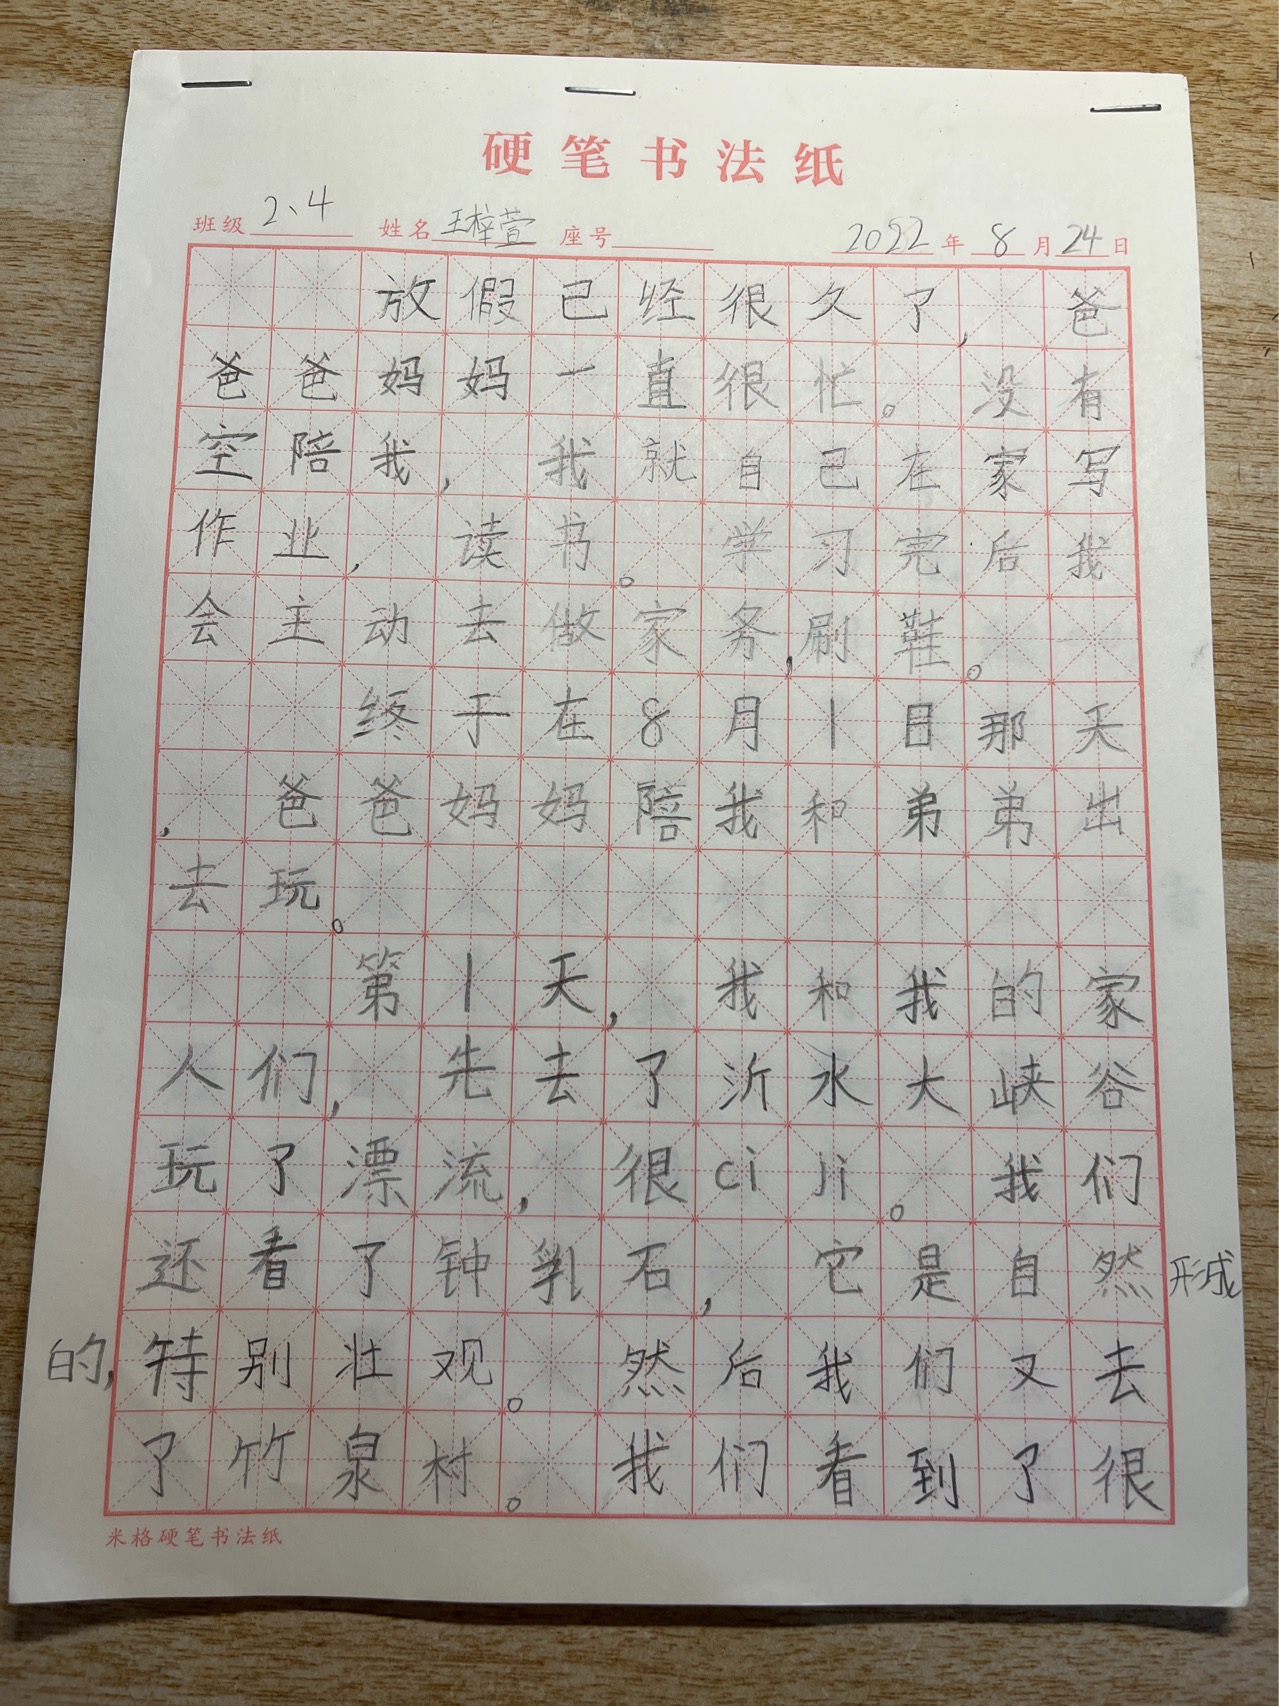 硬笔书法纸
班级 2、4 姓名 王梓萱 座号 2022年 8月 24日
放假已经很久了，爸
爸爸妈妈一直很忙。没有
空陪我，我就自己在家写
作业，读书。学习完后我
会主动去做家务，刷鞋。
终于在8月1日那天
，爸爸妈妈陪我和弟弟出
去玩。
第1天，我和我的家
人们，先去了沂水大峡谷
玩了漂流，很ci ji。我们
还看了钟乳石，它是自然形成
的，特别壮观。然后我们又去
了竹泉村。我们看到了很
米格硬笔书法纸